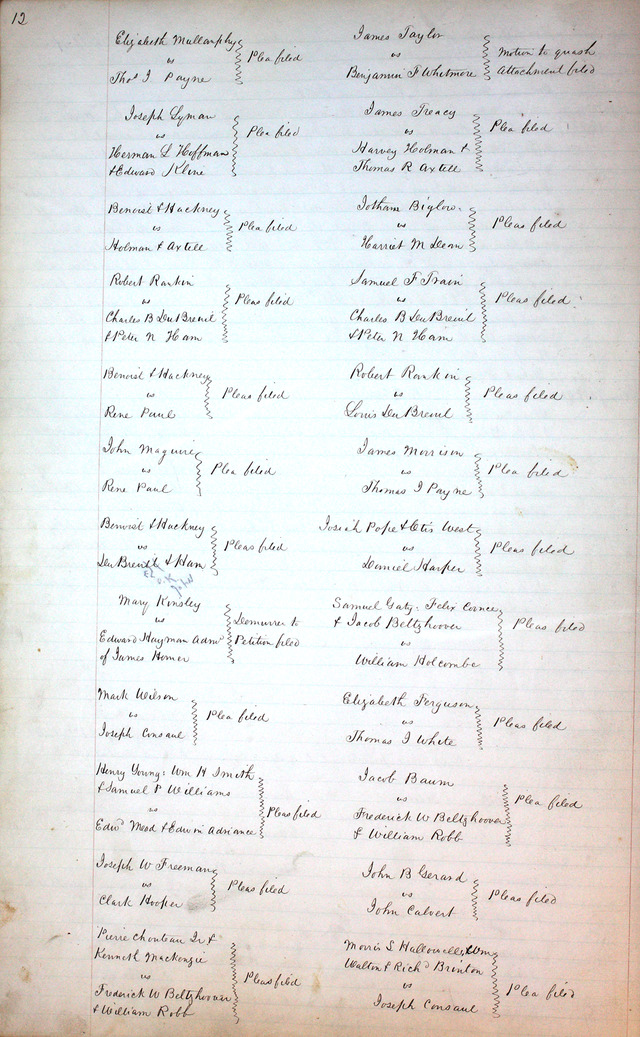 12
Elizabeth Mullanphy
vs
Thos J Payne
Plea filed
James Taylor
vs
Benjamin F Whitmore
Motion to quash
Attachment filed
Joseph Lyman
vs
Herman L Hoffman
& Edward Kline
Plea filed
James Treacy
vs
Harvey Holman &
Thomas R Axtell
Plea filed
Benoist & Hackney
vs
Holman & Axtell
Plea filed
Jotham Biglow
vs
Harriet M Dean
Pleas filed
Robert Rankin
vs
Charles B DuBreuil
& Peter N Ham
Pleas filed
Samuel F Train
vs
Charles B DuBreuil
& Peter N Ham
Pleas filed
Benoist & Hackney
vs
Rene Paul
Pleas filed
Robert Rankin
vs
Louis DuBreuil
Pleas filed
John Maguire
vs
Rene Paul
Plea filed
James Morrison
vs
Thomas J Payne
Plea filed
Benoist & Hackney
vs
DuBreuil & Ham
Pleas filed
Josiah Pope & Otis West
vs
Daniel Harper
Pleas filed
Mary Kinsley
vs
Edward Hayman Admr
of James Homer
Demurrer to
Petition filed
Samuel Gaty: Felix
& Jacob Beltzhoover
vs
William Holcombe
Pleas filed
Mark Wilson
vs
Joseph Consaul
Plea filed
Elizabeth Ferguson
vs
Thomas J White
Pleas filed
Henry Young: Wm H Smith
& Samuel P Williams
vs
Edwd Mead & Edwin Adriance
Pleas filed
Jacob Baum
vs
Frederick W Beltzhoover
& William Robb
Plea filed
Joseph W Freeman
vs
Clark Hooper
Pleas filed
John B Gerard
vs
John Calvert
Pleas filed
Pierre Chouteau Jr &
Kenneth Mackenzie
vs
Frederick W Beltzhoover
& William Robb
Pleas filed
Morris S Hallowell & Wm
Walton & Richd Brinton
vs
Joseph Consaul
Plea filed